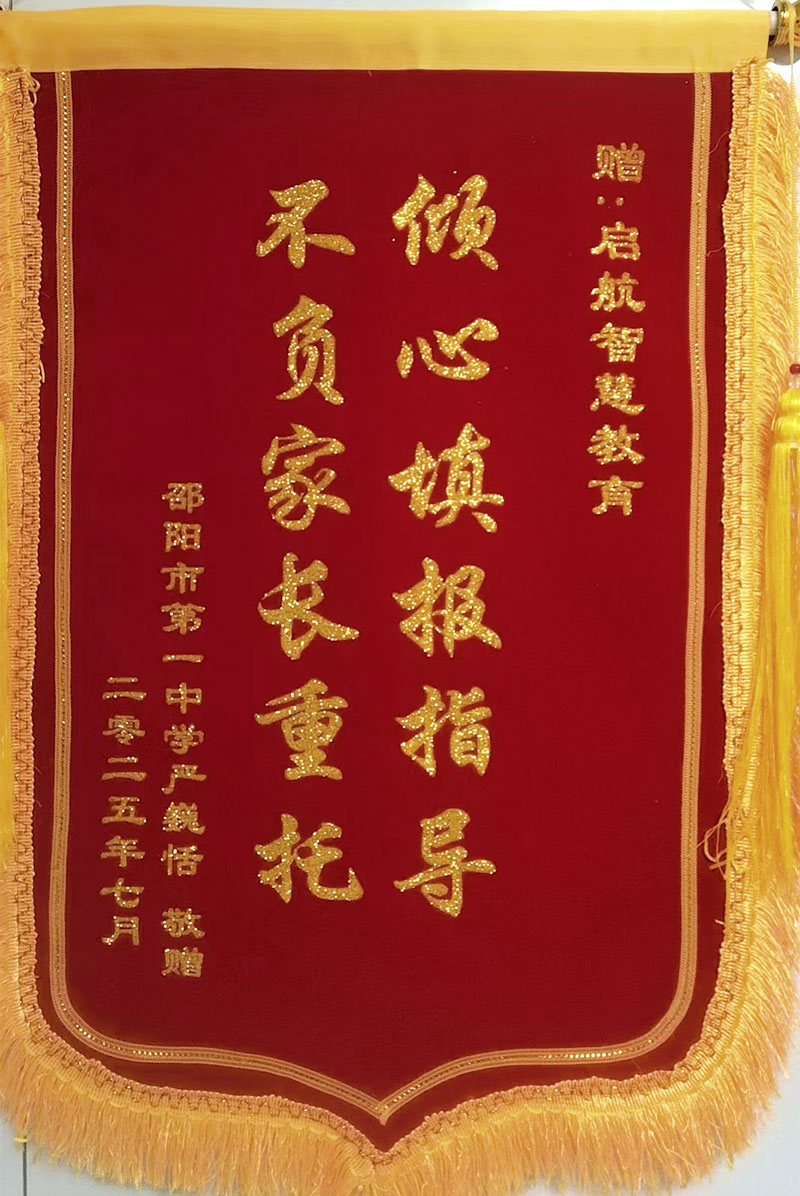 赠：启航智慧教育
倾心填报指导
不负家长重托
邵阳市第一中学严巍恬 敬赠
二零二五年七月